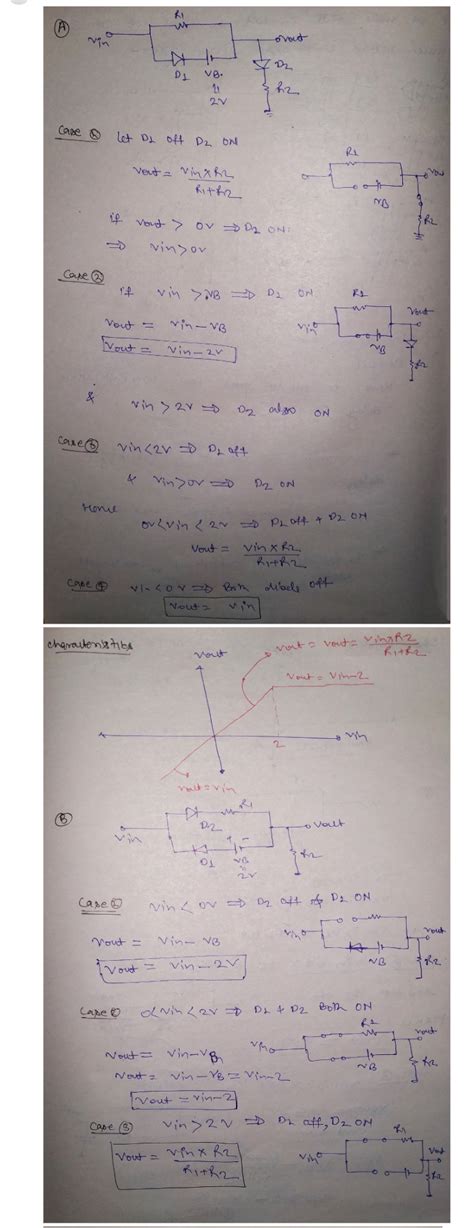 A
R1
Vin
Vout
D1
VB
D2
R2
2V
Case
let D1 off D2 ON
Vout = Vin x R2
R1+R2
R1
VB
R2
if Vout > 0V ⇒ D2 ON
⇒ Vin > 0V
Case 2
if Vin > VB ⇒ D2 ON
R1
Vout
Vin
VB
R2
Vout = Vin - VB
Vout = Vin - 2V
& Vin > 2V ⇒ D2 also ON
Case 3 Vin < 2V ⇒ D2 off
& Vin > 0V ⇒ D2 ON
Hence
0V < Vin < 2V ⇒ D2 off + D2 ON
Vout = Vin x R2
R1+R2
Case Vin < 0V ⇒ Both off
Vout = Vin
characteristics
Vout
Vout = Vout = Vin x R2
R1+R2
Vout = Vin - 2
2
Vin
Vout = Vin
B
R1
D2
Vin
Vout
D1
VB
R2
2V
Case Vin < 0V ⇒ D2 off D2 ON
Vin
Vout
VB
R2
Vout = Vin - VB
Vout = Vin - 2V
Case 0 < Vin < 2V ⇒ D1 + D2 Both ON
Vin
Vout
VB
R2
Vout = Vin - VB
Vout = Vin - VB = Vin - 2
Vout = Vin - 2
Case 3 Vin > 2V ⇒ D2 off, D2 ON
R1
Vin
Vout
R2
Vout = Vin x R2
R1+R2